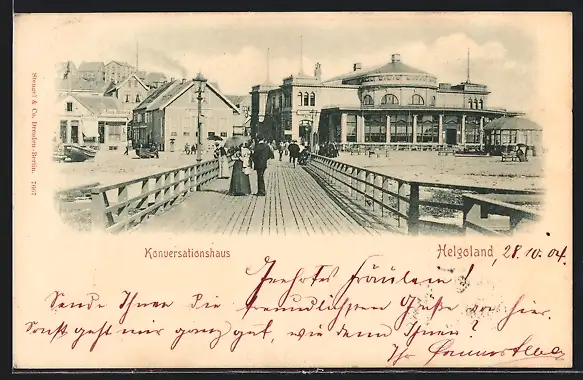 Stengel & Co, Dresden-Berlin. 7667
Konversationshaus
Helgoland, 28.10.04.
Geehrtes Fräulein!
Sende Ihnen die freundlichsten Grüße von hier.
Sonst geht mir ganz gut, wie dem Ihnen?
Ihr